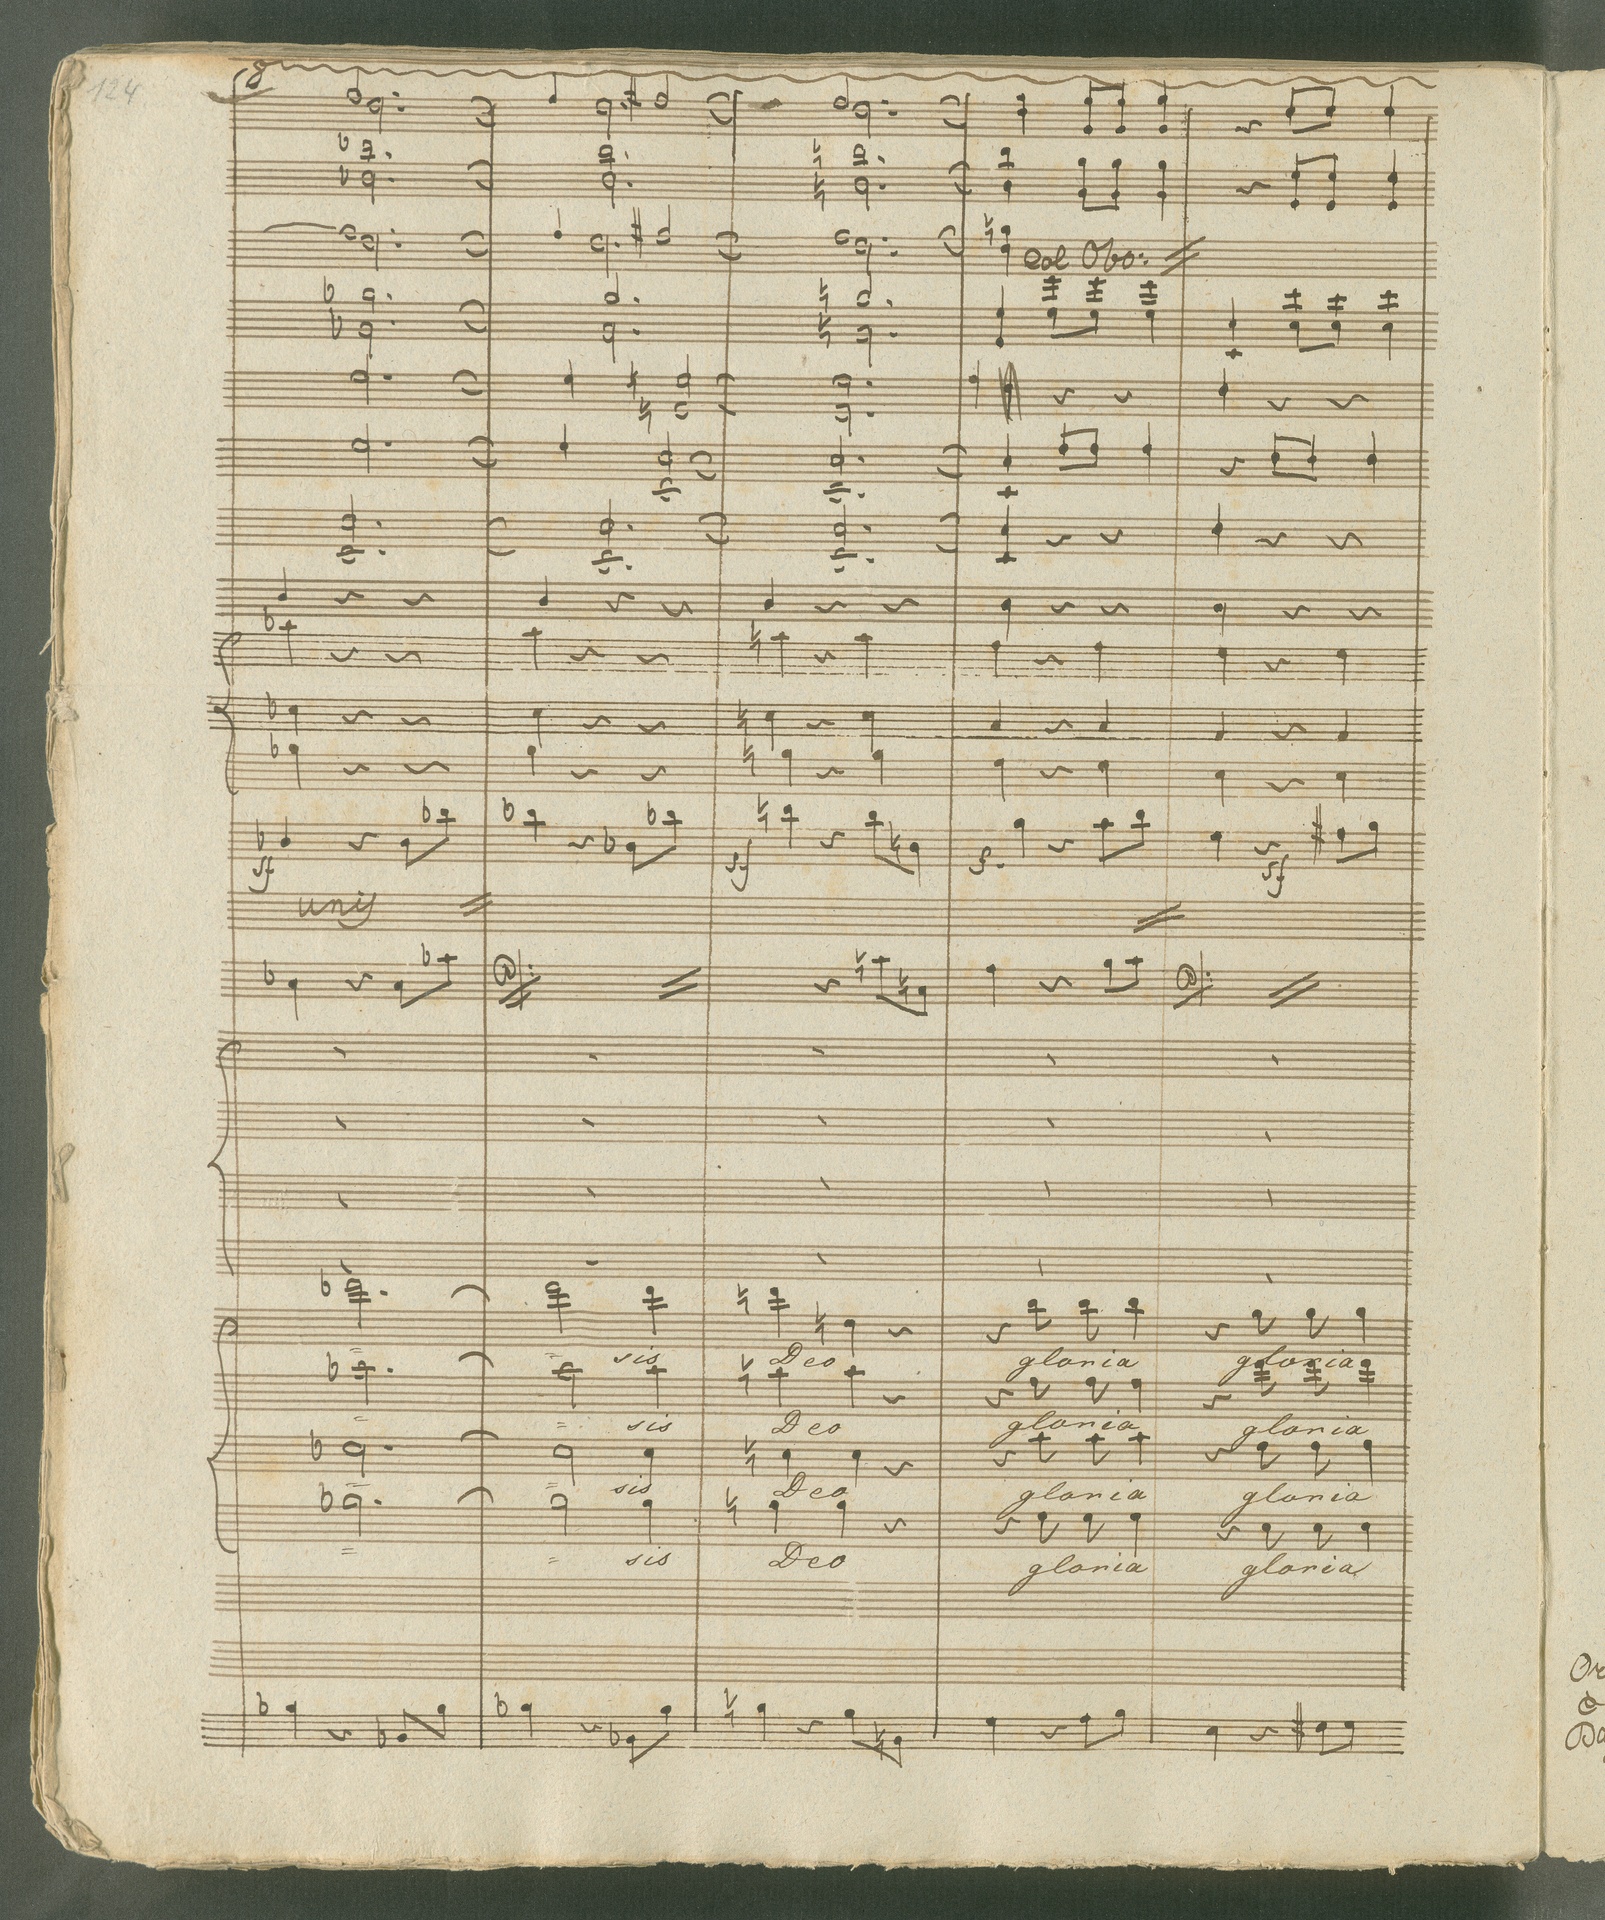 124
8
Col Obo:
sf sf f. sf
unis
sis Deo gloria gloria
sis Deo gloria gloria
sis Deo gloria gloria
sis Deo gloria gloria